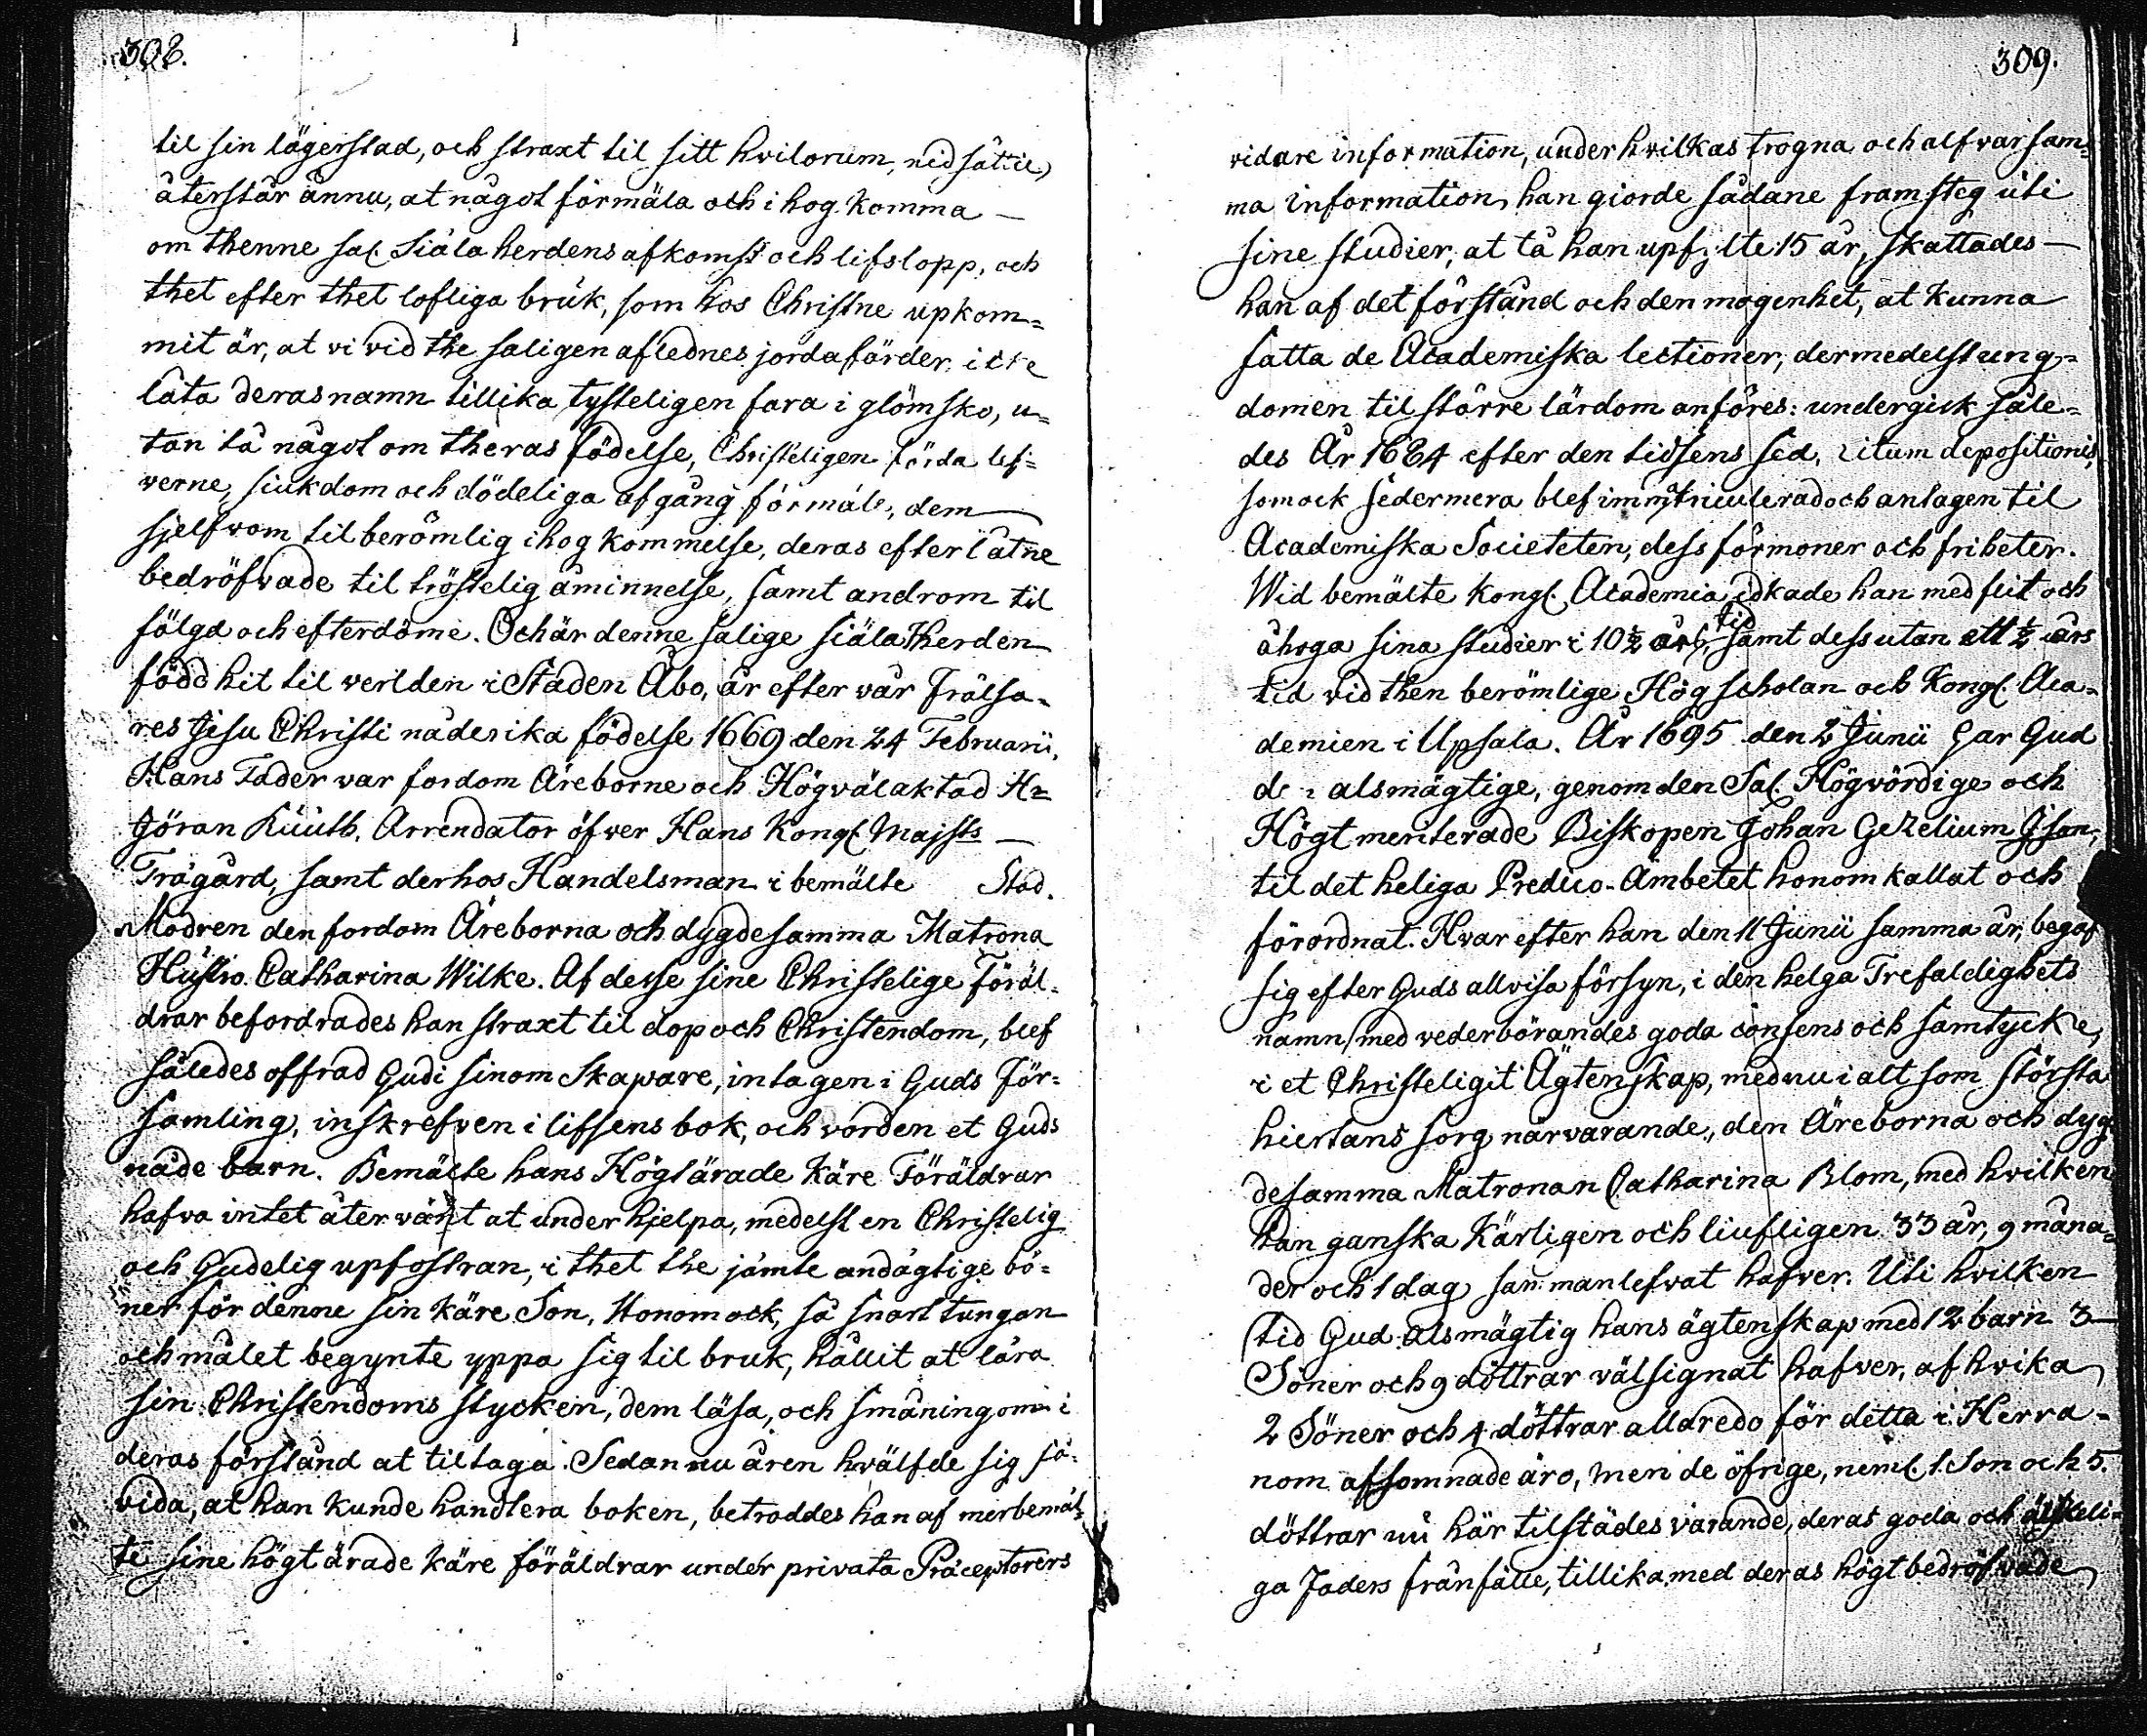 308.
til sin lägerstad, och straxt til sitt hvilorum, nidsättie,
återstår ännu, at något förmäla och i hog komma —
om thenne sal. Siäla herdens afkomst och lifslopp, och
thet efter thet lofliga bruk, som hos Christne upkom=
mit är, at vi vid the saligen aflednes jordafärder, icke
låta deras namn tillika tysteligen fara i glömsko, u=
tan tå något om theras födelse, Christeligen förda lef=
verne, siukdom och dödeliga afgång förmäle, dem
sjelfvom til berömlig ihogkommelse, deras efterlåtne
bedröfvade til tröstelig åminnelse, samt androm til
fölgd och efterdöme. Och är denne salige siäla Herden
född hit til verlden i Staden Åbo, år efter vår Frälsa=
res Jesu Christi nåderika födelse 1669 den 24 Februarii.
Hans Fader var fordom Äreborne och Högvälaktad Hr
Jöran Küüth, Arrendator öfver Hans Kongl. Majsts —
Trägård, samt derhos Handelsman i bemälte Stad.
Modren den fordom Äreborna och dygdesamma Matrona
Hustro Catharina Wilke. Af desse sine Christelige Föräl=
drar befordrades han straxt til dop och Christendom, blef
således offrad Gudi sinom Skapare, intagen i Guds För=
samling, inskrefven i lifsens bok, och vorden et Guds
nåde barn. Bemälte hans Högtärade Käre Föräldrar
hafva intet återvänt at underhjelpa, medelst en Christelig
och Gudelig upfostran, i thet the jämte andägtige bö=
ner för denne sin Käre Son, Honom ock, så snart tungan
och målet begynte yppa sig til bruk, hållit at lära
sin Christendoms stycken, dem läsa, och småningom i
deras förstånd at tiltaga. Sedan nu åren hvälfde sig så=
vida, at han kunde handtera boken, betroddes han af merbemäl=
te sine högtärade Käre föräldrar under privata Præceptorers
309.
vidare information, under hvilkas trogna och alfvarsam=
ma information han giorde sådane framsteg uti
sine studier, at tå han upfylte 15 år, skattades —
han af det förstånd och den mogenhet, at kunna
fatta de Academiska lectioner, dermedelst ung=
domen til större lärdom anföres: undergick såle=
des År 1684 efter den tidsens sed, ritum depositionis,
som ock sedermera blef immatriculerad och antagen til
Academiska Societeten, dess förmoner och friheter.
Wid bemälte Kongl. Academia idkade han med flit och
åhoga sina studier i 10½ års tid samt dessutan ett ½ års
tid vid then berömlige Högscholan och Kongl. Aca=
demien i Upsala. År 1695 den 2 Junii har Gud
den alsmägtige, genom den Sal. Högvördige och
Högtmeriterade Biskopen Johan Gezelium Json,
til det heliga Predico-Ämbetet honom kallat och
förordnat. Hvarefter han den 11 Junii samma år, begaf
sig efter Guds allvisa försyn, i den helga Trefaldighets
namn, med vederbörandes goda consens och samtycke,
i et Christeligit Ägtenskap, med nu i alt som största
hiertans sorg närvarande, den Äreborna och dyg=
desamma Matronan Catharina Blom, med hvilken
han ganska Kärligen och liufligen 33 år, 9 måna=
der och 1 dag samman lefvat hafver. Uti hvilken
tid Gud alsmägtig hans ägtenskap med 12 barn 3 —
Söner och 9 döttrar välsignat hafver, af hvika
2 Söner och 4 döttrar allaredo för detta i Herra=
nom afsomnade äro, men de öfrige, neml. 1. Son och 5.
döttrar nu här tilstädes varande, deras goda och älskeli=
ga Faders frånfälle, tillika med deras högtbedröfvade